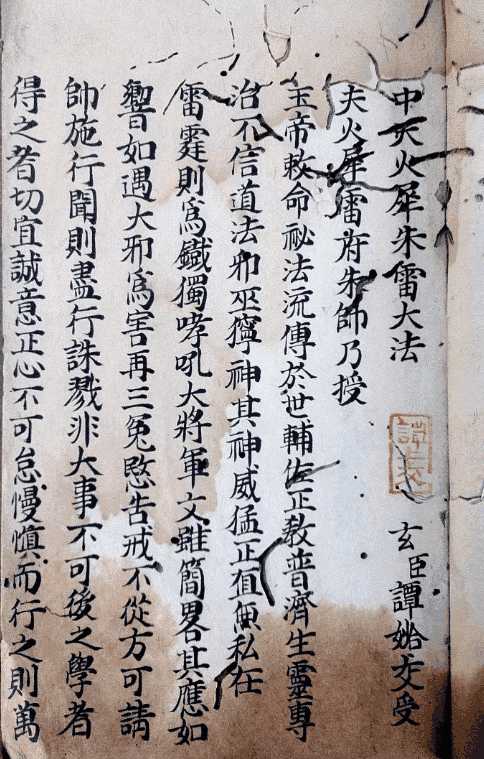 中天火犀朱雷大法
玄臣譚 受
夫火犀雷府朱帥乃授
玉帝敕命祕法流傳於世輔佐正教普濟生靈專
治不信道法邪巫獰神其神威猛正直無私在
雷霆則為鐵獨哮吼大將軍文雖簡畧其應如
響如遇大邪為害再三冤愍告戒不從方可請
帥施行聞則盡行誅戮非大事不可後之學者
得之者切宜誠意正心不可怠慢慎而行之則萬